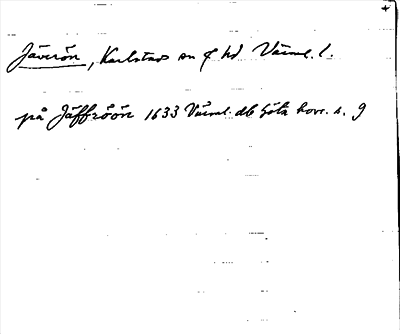 Jäverön, Karlstads sn o hd Värml. l.
på Jäffröön 1633 Värml. db Göta hovr. s. 9